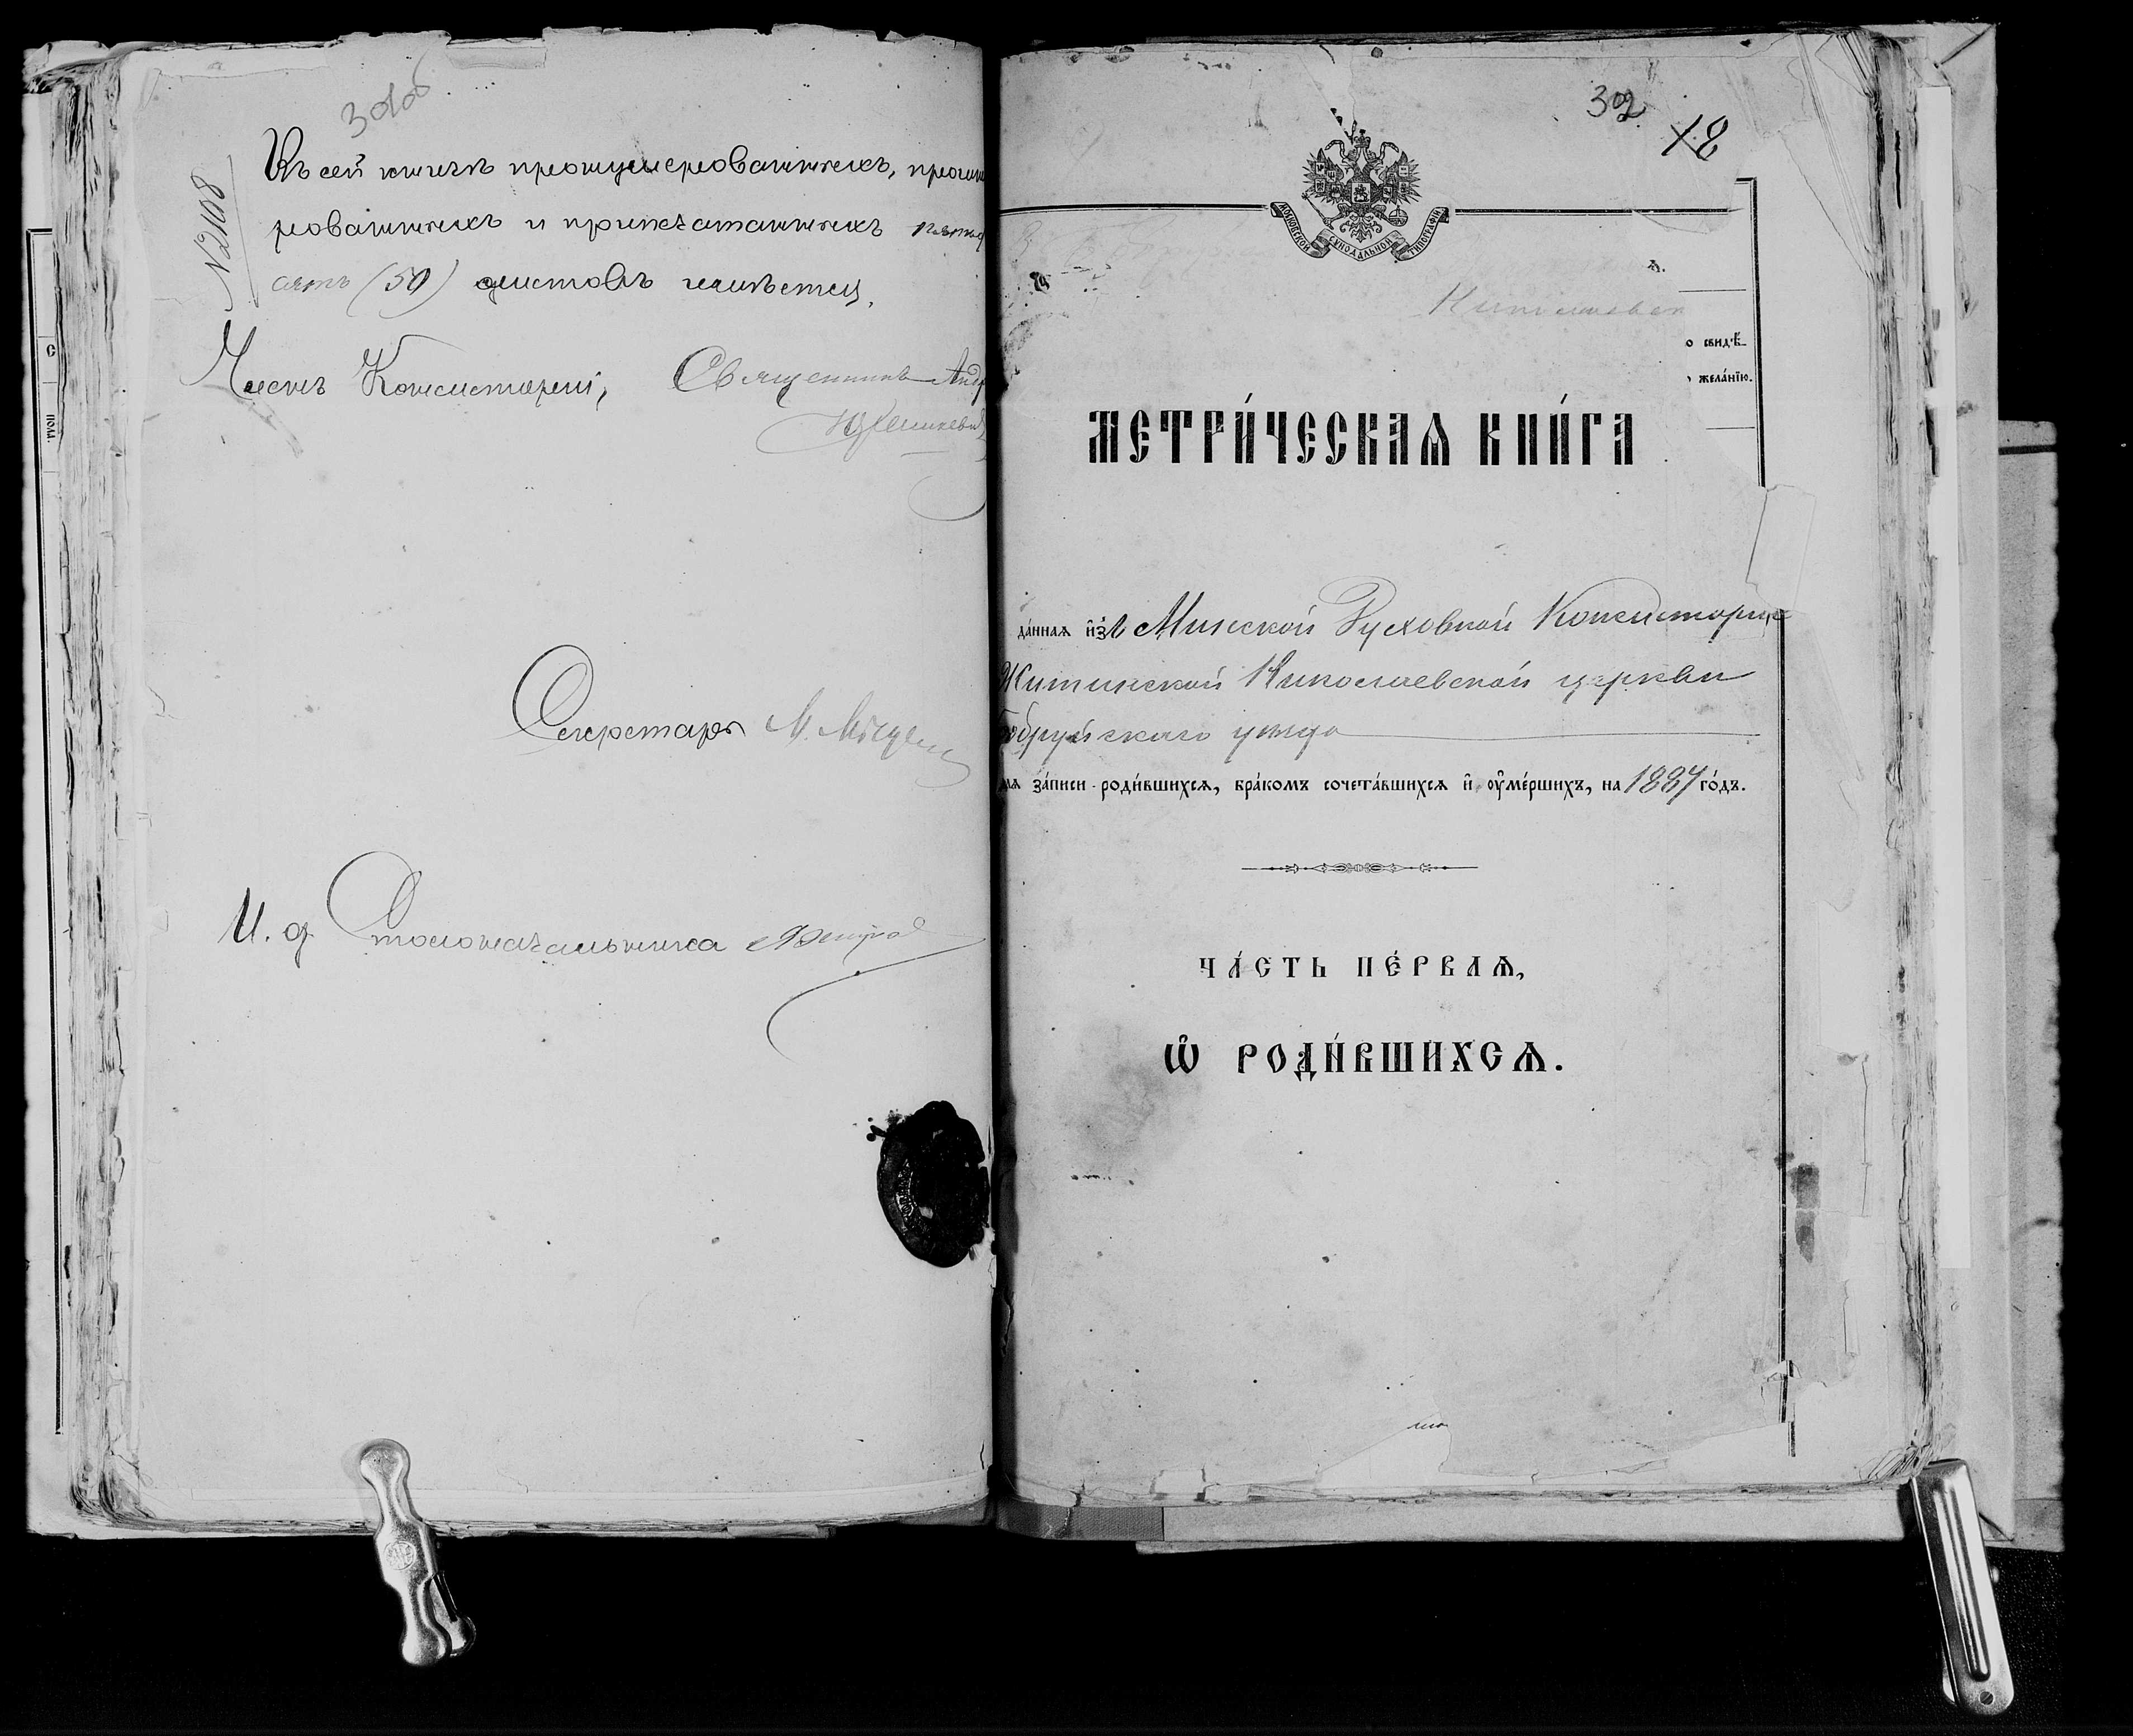 301об
№2108
Въ сей книгѣ пронумерованныхъ, прошну
рованныхъ и припечатанныхъ пятьд
сятъ (50) листовъ имѣется.
Членъ Консисторіи, Священникъ Андр
Секретарь М.
И. д. Столоначальника
302
18
МОСКОВСКОЙ СѴНОДАЛЬНОЙ ТИПОГРАФІИ
ѧ.
о свидѣ-
желанїю.
МЕТРИ́ЧЕСКАѦ КНИ́ГА
да́ннаѧ и҆зъ Минской Духовной Консисторіи
Житинской Николаевской церкви
Бобруйскаго уѣзда
длѧ за́писи роди́вшихсѧ, бра́комъ сочета́вшихсѧ и҆ оу҆ме́ршихъ, на 1887 го́дъ.
ЧА́СТЬ ПЕ́РВАѦ,
Ѡ҆ РОДИ́ВШИХСѦ.
С
ПОЛА.